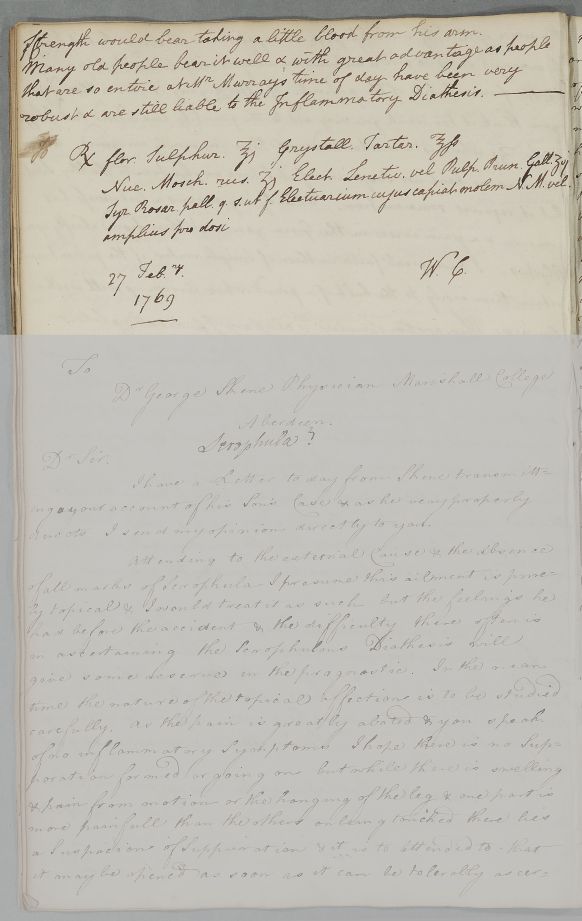 strength would bear taking a little blood from his arm.
Many old people bear it well & with great advantage as people
that are so entire at Mr Murrays time of day have been very
robust & are still liable to the Inflammatory Diathesis. —
℞ flor. Sulphur. ℥j Crystall. Tartar. ℥ſs
Nuc. Mosch. rus. ʒj Elect. Lenetiv. vel Pulp. Prun. Gall. ℥vj
Syr Rosar pall. q. s. ut f Electuarium cujus capiat molem N. M. vel.
amplius pro dosi
27 Feb.ry.
1769
W. C.
To
Dr George Skene Physician Marishall College
Aberdeen.
Scrophula?
Dr Sir.
I have a Letter to day from Skene transmitt=
ing your account of his Son's Case & as he very properly
directs I send my opinion directly to you.
Attending to the external Cause & the absence
of all marks of Scrophula I presume this ailment is pure=
ly topical & I would treat it as such but the feelings he
had before the accident & the difficulty there often is
in ascertaining the Scrophulous Diathesis will
give some reserve in the prognostic. In the mean
time the nature of the topical affections is to be studied
carefully. As the pain is greatly abated & you speak
of no inflammatory Symptoms I hope there is no Sup=
puration formed or going on: but while there is swelling
& pain from motion or the hanging of the leg & one part is
more painfull than the others on being touched there lies
a Suspicion of Suppuration & it is to attended to that
it may be opened as soon as it can be tolerally ascer=